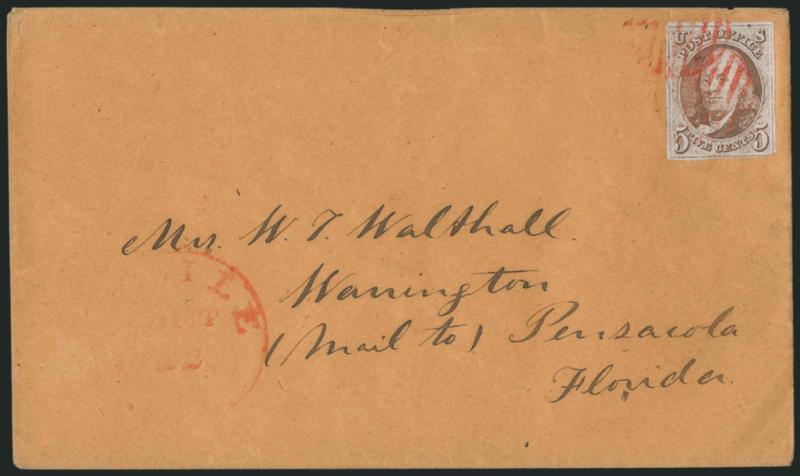 U S
POST OFFICE
5 FIVE CENTS 5
Mrs. W. T. Walthall.
Warrington
(Mail to) Pensacola
Florida.
ILE
12